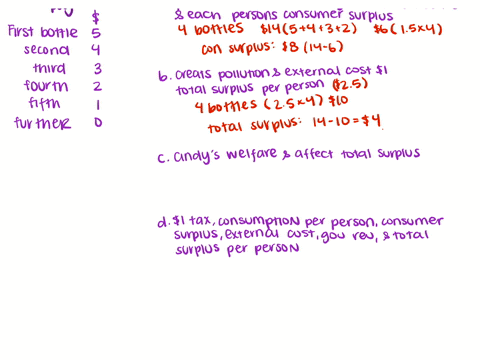 $
First bottle 5
second 4
third 3
fourth 2
fifth 1
further 0
& each persons consumer surplus
4 bottles $14 (5+4+3+2) $6 (1.5x4)
con surplus: $8 (14-6)
b. creats pollution & external cost $1
total surplus per person ($2.5)
4 bottles (2.5x4) $10
total surplus: 14-10 = $4
c. Andy's welfare & affect total surplus
d. $1 tax, consumption per person, consumer
surplus, external cost, gov rev, & total
surplus per person